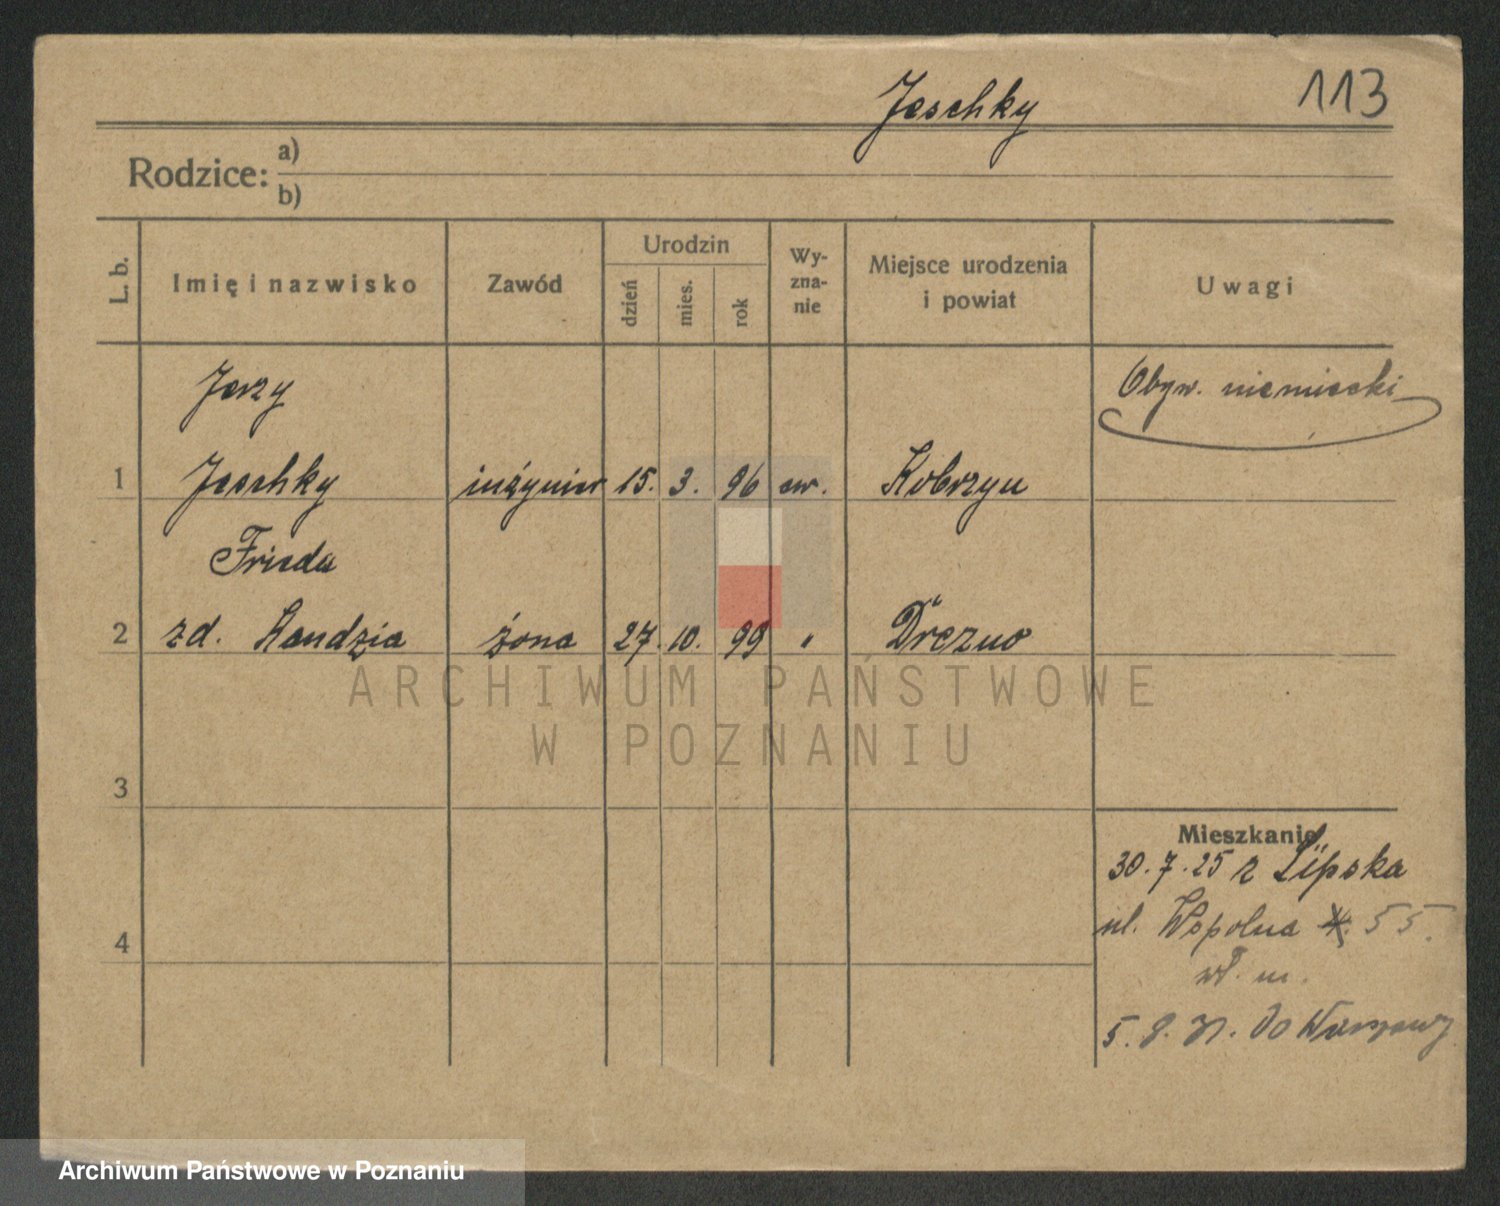 Jeschky
113
Rodzice: a)
b)
L. b.
Imię i nazwisko
Zawód
Urodzin
dzień
mies.
rok
Wy-
zna-
nie
Miejsce urodzenia
i powiat
Uwagi
Jerzy
Obyw. niemiecki
1 Jeschky inżynier 15. 3. 96 ew. Kobrzyn
Frieda
2 zd. Handzia żona 27. 10. 99 " Drezno
3
4
Mieszkanie
30. 7. 25 z Lipska
ul. Wspolna 55.
wł. m.
5. 9. Do Warszawy
ARCHIWUM PAŃSTWOWE
W POZNANIU
Archiwum Państwowe w Poznaniu